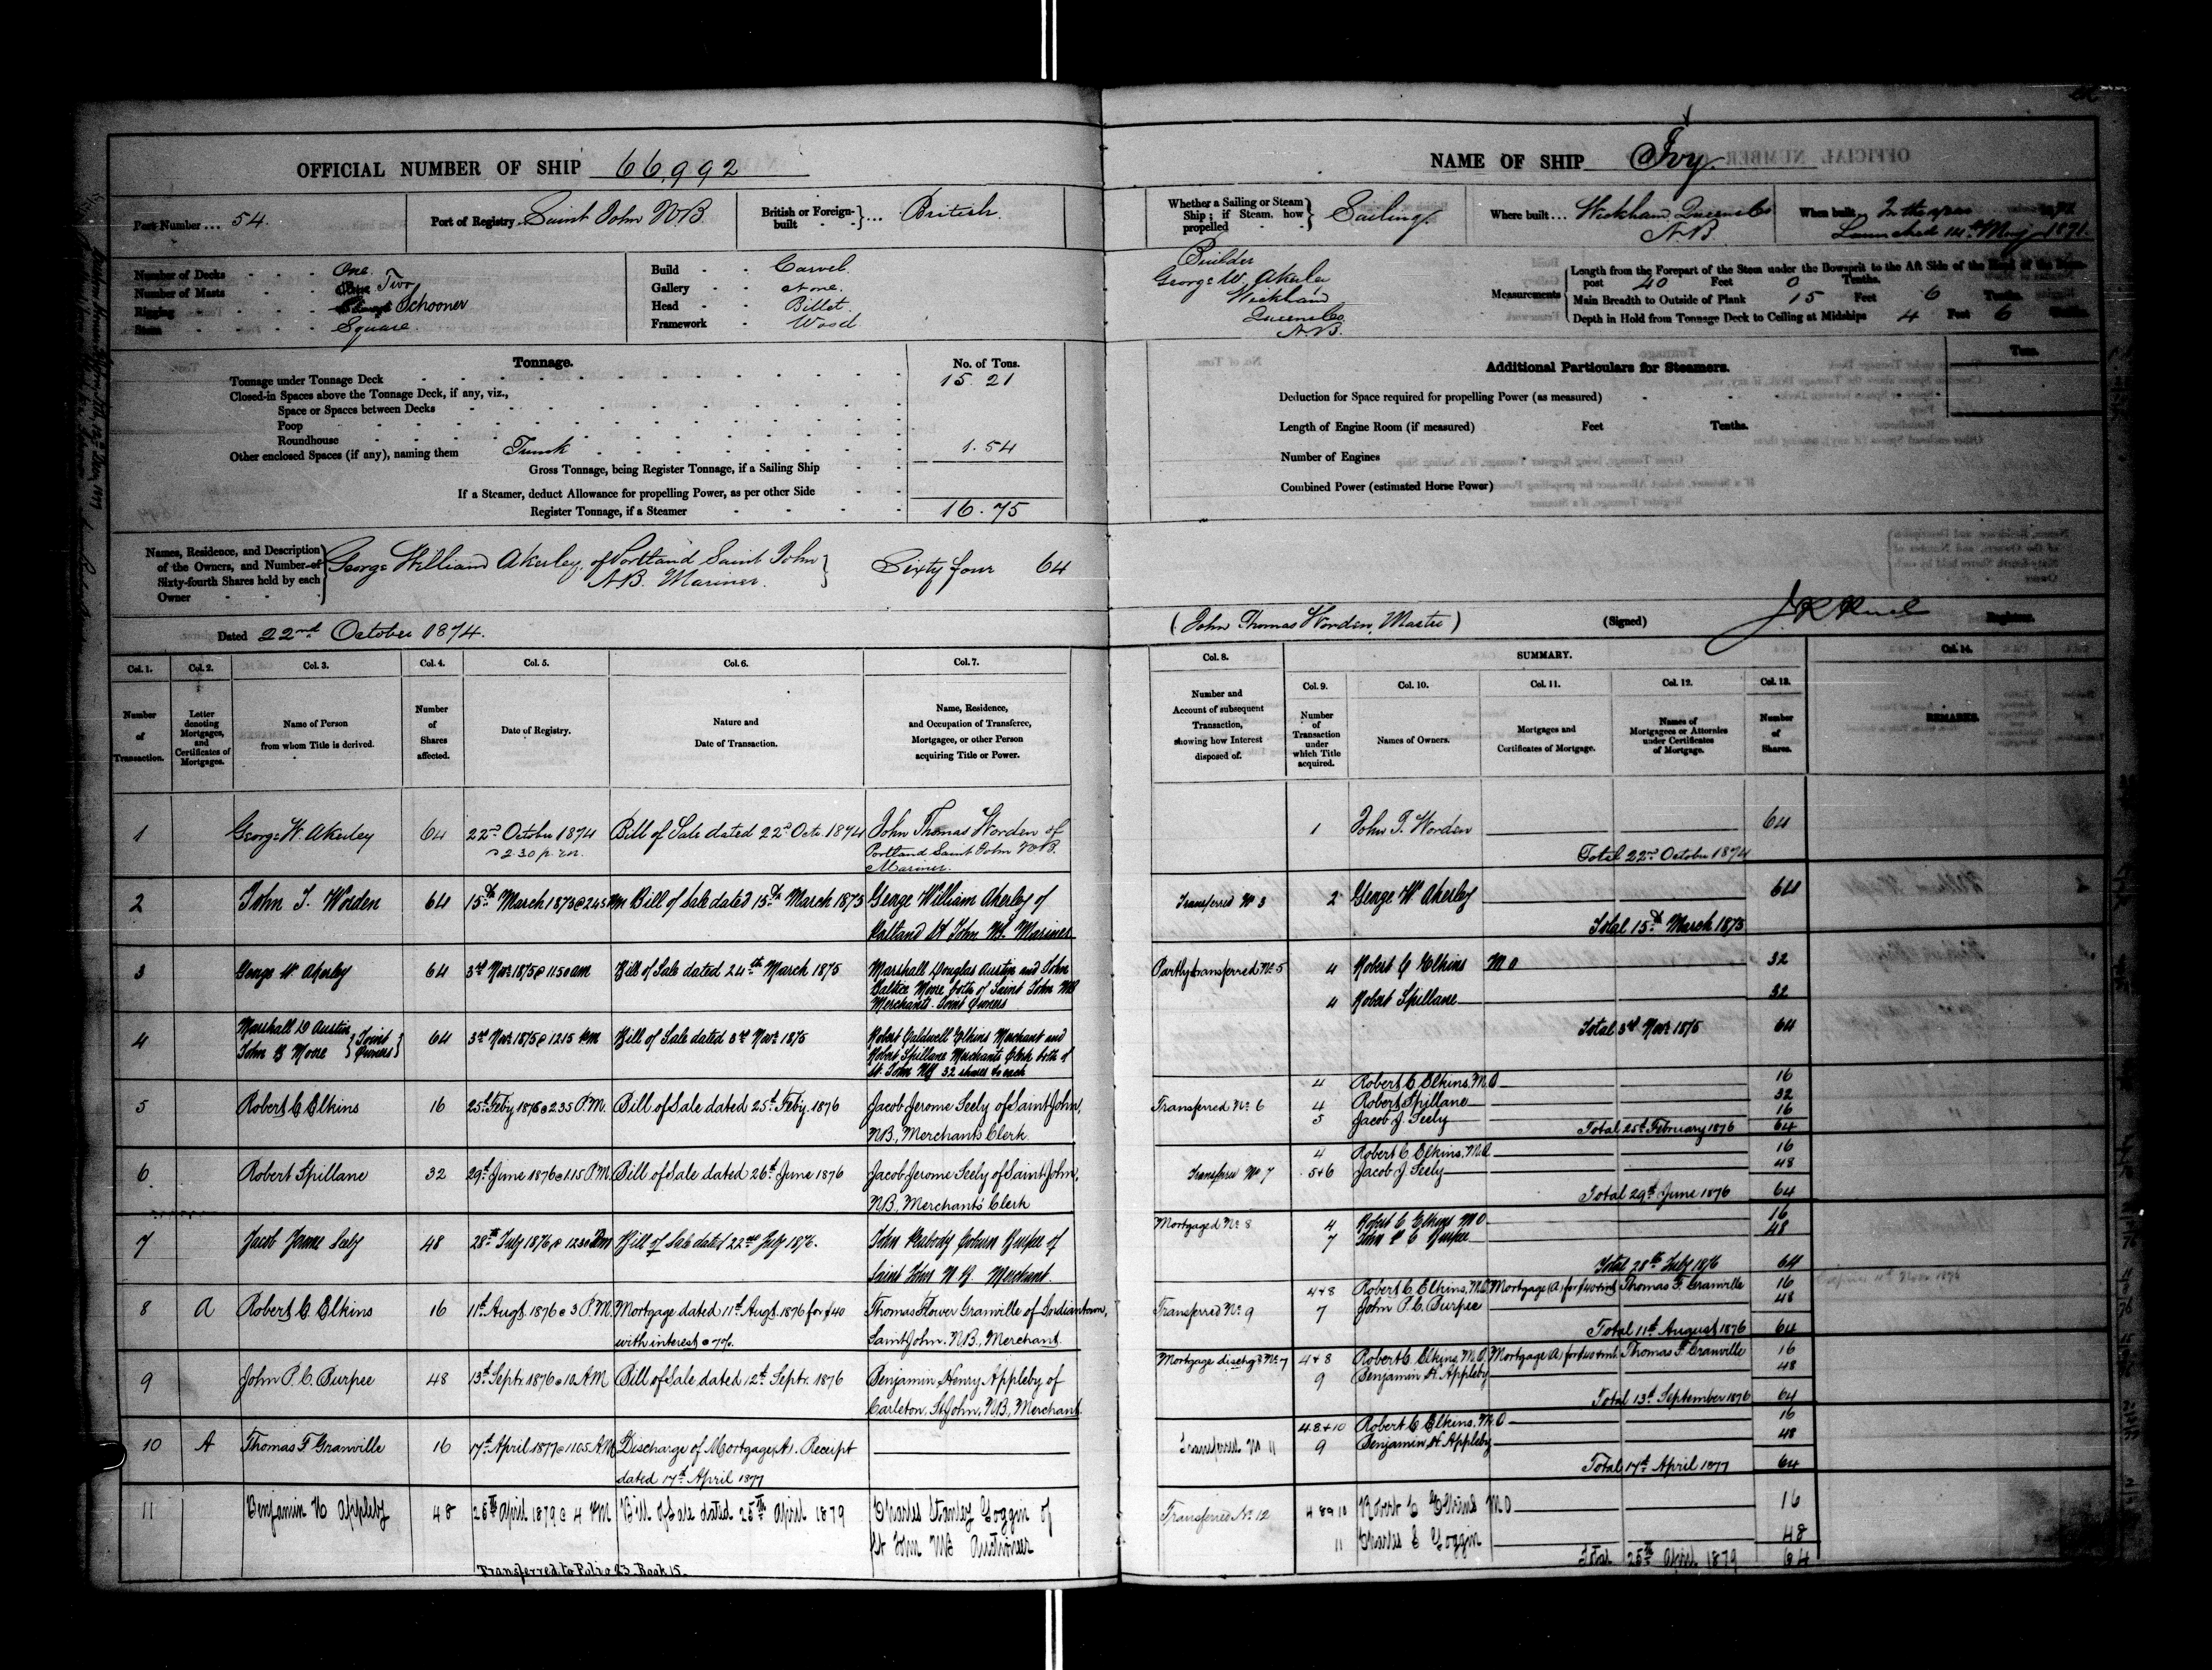 OFFICIAL NUMBER OF SHIP 66,992
Port Number ... 54.
Port of Registry Saint John NB
British or Foreign-built ... British.
Number of Decks One.
Number of Masts Two
Rigging Schooner
Stern Square.
Build Carvel.
Gallery None.
Head Billet.
Framework Wood
Tonnage.
No. of Tons.
Tonnage under Tonnage Deck 15.21
Closed-in Spaces above the Tonnage Deck, if any, viz.,
Space or Spaces between Decks
Poop
Roundhouse
Other enclosed Spaces (if any), naming them Trunk 1.54
Gross Tonnage, being Register Tonnage, if a Sailing Ship
If a Steamer, deduct Allowance for propelling Power, as per other Side
Register Tonnage, if a Steamer 16.75
Names, Residence, and Description of the Owners, and Number of Sixty-fourth Shares held by each Owner
George William Akerley, of Portland Saint John
N.B. Mariner.
Sixty four 64
Dated 22nd October 1874.
NAME OF SHIP Ivy.
Whether a Sailing or Steam Ship; if Steam, how propelled Sailing.
Where built ... Wickham Queens Co
N.B
When built In the year
Launched 14th May 1871.
Builder
George W. Akerley
Wickham
Queens Co
N.B.
Measurements
Length from the Forepart of the Stem under the Bowsprit to the Aft Side of the Head of the Stern
post 40 Feet 0 Tenths.
Main Breadth to Outside of Plank 15 Feet 6 Tenths.
Depth in Hold from Tonnage Deck to Ceiling at Midships 4 Feet 6
Tons.
Additional Particulars for Steamers.
Deduction for Space required for propelling Power (as measured)
Length of Engine Room (if measured) Feet Tenths.
Number of Engines
Combined Power (estimated Horse Power)
(John Thomas Worden, Master) (Signed) Registrar.
Col. 1. Col. 2. Col. 3. Col. 4. Col. 5. Col. 6. Col. 7.
Number of Transaction.
Letter denoting Mortgages, and Certificates of Mortgages.
Name of Person from whom Title is derived.
Number of Shares affected.
Date of Registry.
Nature and Date of Transaction.
Name, Residence, and Occupation of Transferee, Mortgagee, or other Person acquiring Title or Power.
1 George W. Akerley 64 22nd October 1874 Bill of Sale dated 22nd Octr. 1874 John Thomas Worden of
2.30 p.m. Portland Saint John NB.
Mariner.
2 John T. Worden 64 15th March 1875 @ 2.45 PM Bill of Sale dated 15th March 1875 George William Akerley of
Portland St John NB. Mariner
3 George W. Akerley 64 3rd Novr 1875 @ 11 50 am Bill of Sale dated 24th March 1875 Marshall Douglas Austin and John
Moore both of Saint John NB
Merchants. Joint Owners
4 Marshall D Austin
John B Moore } Joint Owners } 64 3rd Novr 1875 @ 12 15 pm Bill of Sale dated 3rd Novr 1875 Robert Caldwell Elkins Merchant and
Robert Spillane Merchants Clerk both of
St. John NB 32 shares to each
5 Robert C Elkins 16 25th Feby 1876 @ 2.35 P.M. Bill of Sale dated 25th Feby. 1876 Jacob Jerome Seely of Saint John,
N.B., Merchant's Clerk
6 Robert Spillane 32 29th June 1876 @ 1.15 P.M. Bill of Sale dated 26th June 1876 Jacob Jerome Seely of Saint John,
N.B., Merchants' Clerk
7 Jacob Jerome Seely 48 28th July 1876 @ 12 30 Pm Bill of Sale dated 22nd July 1876. John Peabody Coburn Burpee of
Saint John N. B. Merchant.
8 A Robert C Elkins 16 11th Augt. 1876 @ 3 P.M. Mortgage dated 11th Augt. 1876 for $40 Thomas Flower Granville of Indiantown,
with interest @ 7%. Saint John. N.B., Merchant
9 John P. C. Burpee 48 13th Septr. 1876 @ 10 AM Bill of Sale dated 12th Septr. 1876 Benjamin Henry Appleby of
Carleton, St John, N.B., Merchant
10 A Thomas F Granville 16 17th April 1877 @ 11.05 AM Discharge of Mortgage A. Receipt
dated 17th April 1877
11 Benjamin H Appleby 48 25th April 1879 @ 4 PM Bill of Sale dated 25th April 1879 Charles Stanley Goggin of
St John NB Auctioneer
Transferred to Folio 23. Book 15.
Col. 8. SUMMARY. Col. 14.
Col. 9. Col. 10. Col. 11. Col. 12. Col. 13.
Number and Account of subsequent Transaction, showing how Interest disposed of.
Number of Transaction under which Title acquired.
Names of Owners.
Mortgages and Certificates of Mortgage.
Names of Mortgagees or Attornies under Certificates of Mortgage.
Number of Shares.
REMARKS.
1 John T. Worden 64
Total 22nd October 1874
Transferred No 3 2 George W. Akerley 64
Total 15th March 1875
Partly transferred No. 5 4 Robert C Elkins M O 32
4 Robert Spillane 32
Total 3rd Novr 1875 64
4 Robert C Elkins. M.O 16
Transferred No. 6 4 Robert Spillane 32
5 Jacob J. Seely 16
Total 25th February 1876 64
4 Robert C Elkins. M.O 16
Transfer No 7 5+6 Jacob J Seely 48
Total 29th June 1876 64
Mortgaged No. 8 4 Robert C Elkins M O 16
7 John P C Burpee 48
Total 28th July 1876 64
4+8 Robert C. Elkins, M.O Mortgage (A) for $40+int Thomas F. Granville 16
Transferred No. 9 7 John P. C. Burpee 48
Total 11th August 1876 64
Mortgage dischgd No. 7 4+8 Robert C. Elkins. M.O. Mortgage (A) for $40+int. Thomas F. Granville 16
9 Benjamin H. Appleby 48
Total 13th September 1876 64
4.8+10 Robert C Elkins. M.O 16
Transferred No 11 9 Benjamin H. Appleby 48
Total 17th April 1877 64
Transferred No. 12 4 8 & 10 Robert C Elkins M O 16
11 Charles S Goggin 48
Total 25th April 1879 64